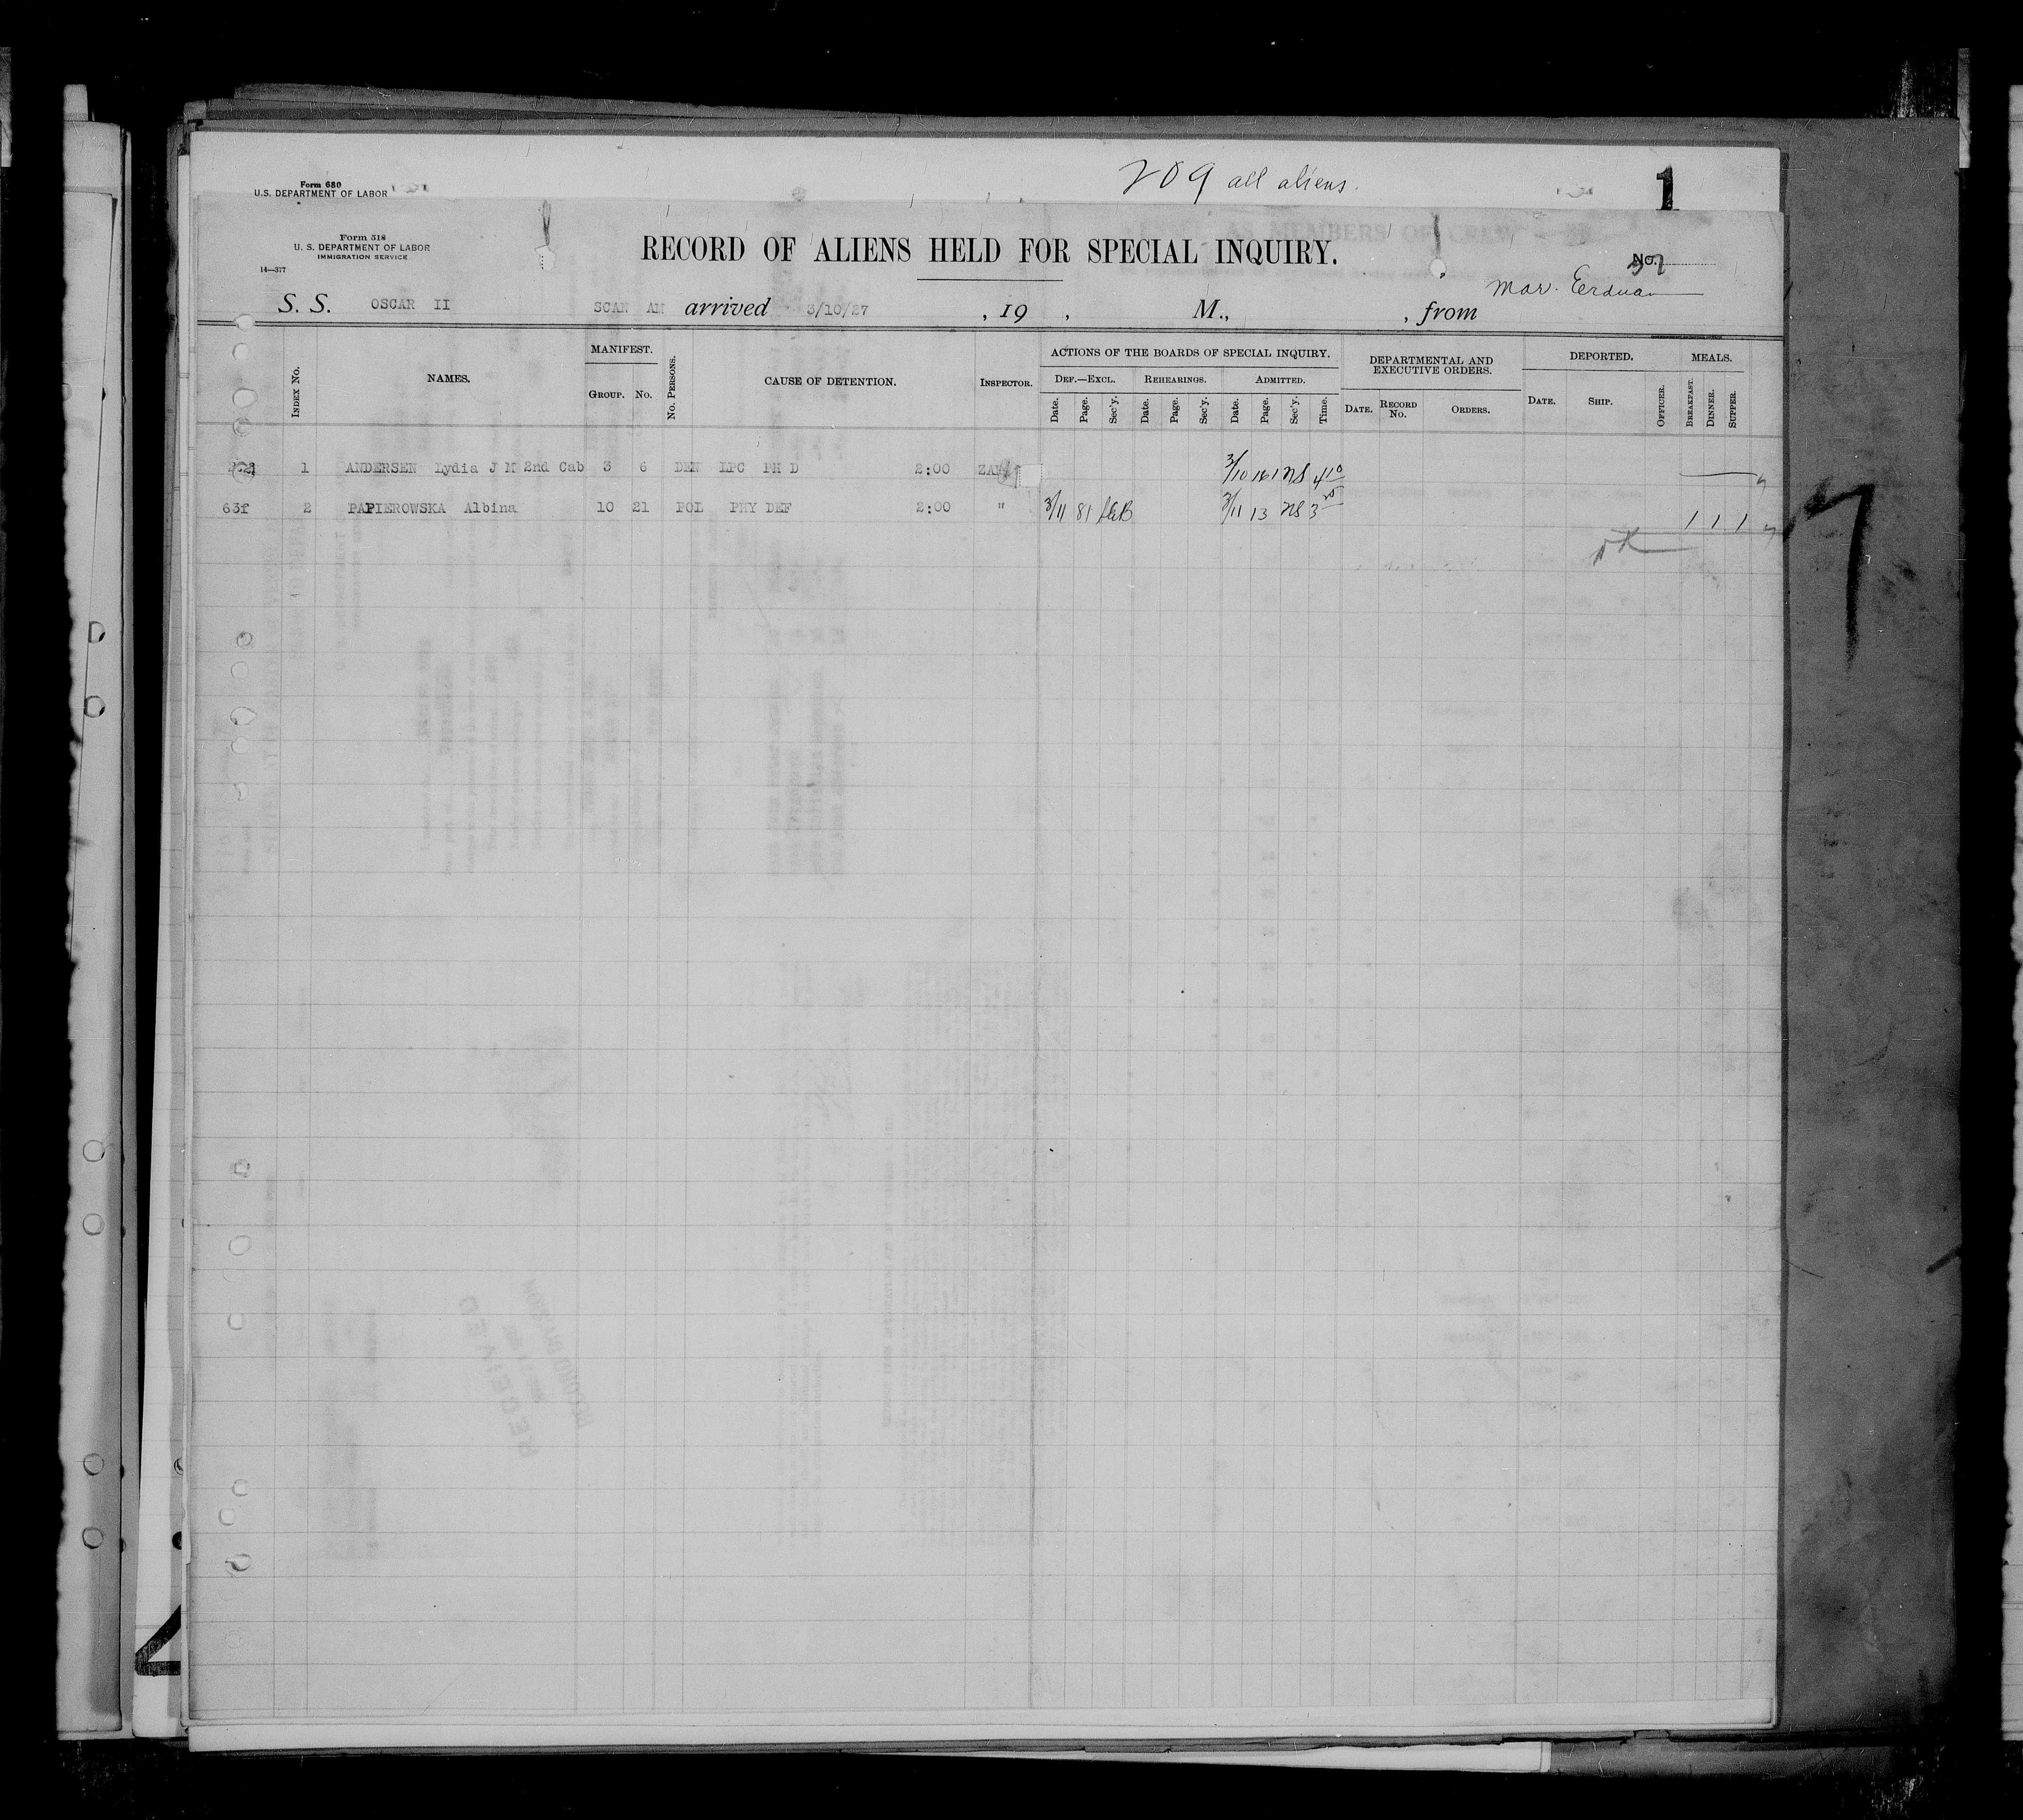 209 all aliens.
1
Form 680
U.S. DEPARTMENT OF LABOR
Form 518
U. S. DEPARTMENT OF LABOR
IMMIGRATION SERVICE
14—377
RECORD OF ALIENS HELD FOR SPECIAL INQUIRY.
No.
S. S. OSCAR II SCAN AM arrived 3/10/27 , 19 , M., , from
INDEX No.
NAMES.
MANIFEST.
GROUP. No.
No. PERSONS.
CAUSE OF DETENTION.
INSPECTOR.
ACTIONS OF THE BOARDS OF SPECIAL INQUIRY.
DEF.—EXCL. REHEARINGS. ADMITTED.
Date. Page. Sec'y. Date. Page. Sec'y. Date. Page. Sec'y. Time.
DEPARTMENTAL AND EXECUTIVE ORDERS.
DATE. RECORD No. ORDERS.
DEPORTED.
DATE. SHIP. OFFICER.
MEALS.
BREAKFAST. DINNER. SUPPER.
1 ANDERSEN Lydia J M 2nd Cab 3 6 DEN LPC PH D 2:00 3/10 161 NS 4 10
63f 2 PAPIEROWSKA Albina 10 21 POL PHY DEF 2:00 " 3/11 81 3/11 13 NS 3 1 1 1